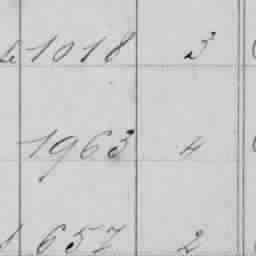 1018 3
1963 4
657 2